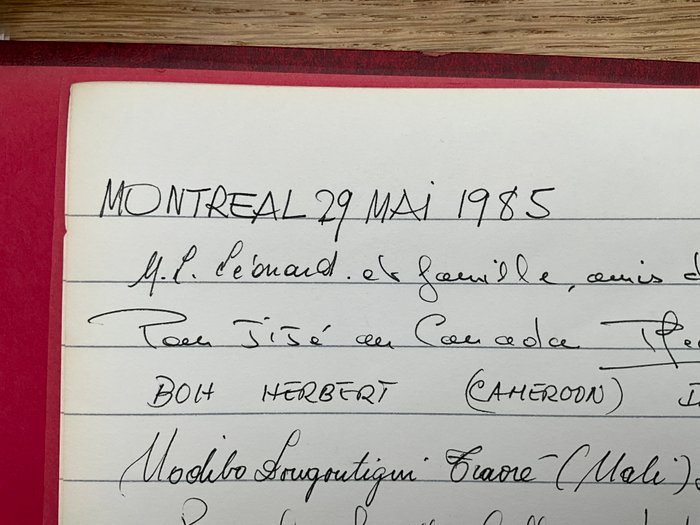 MONTREAL 29 MAI 1985
M. L. Léonard. et famille, amis d
Jijé au Canada
BOH HERBERT (CAMEROON)
Modibo Traoré (Mali)